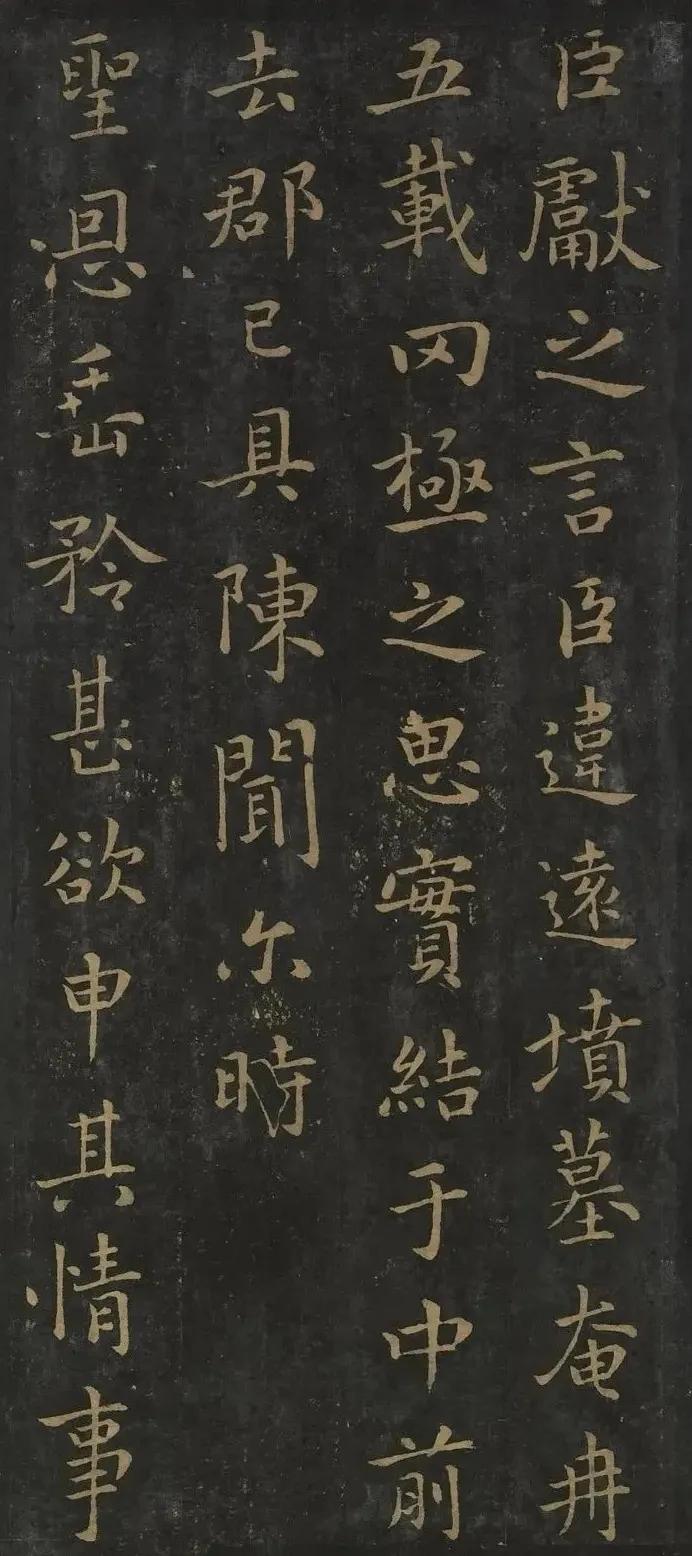 臣獻之言臣違遠墳墓奄冉
五載罔極之思實結于中前
去郡已具陳聞尔時
聖恩垂矜甚欲申其情事